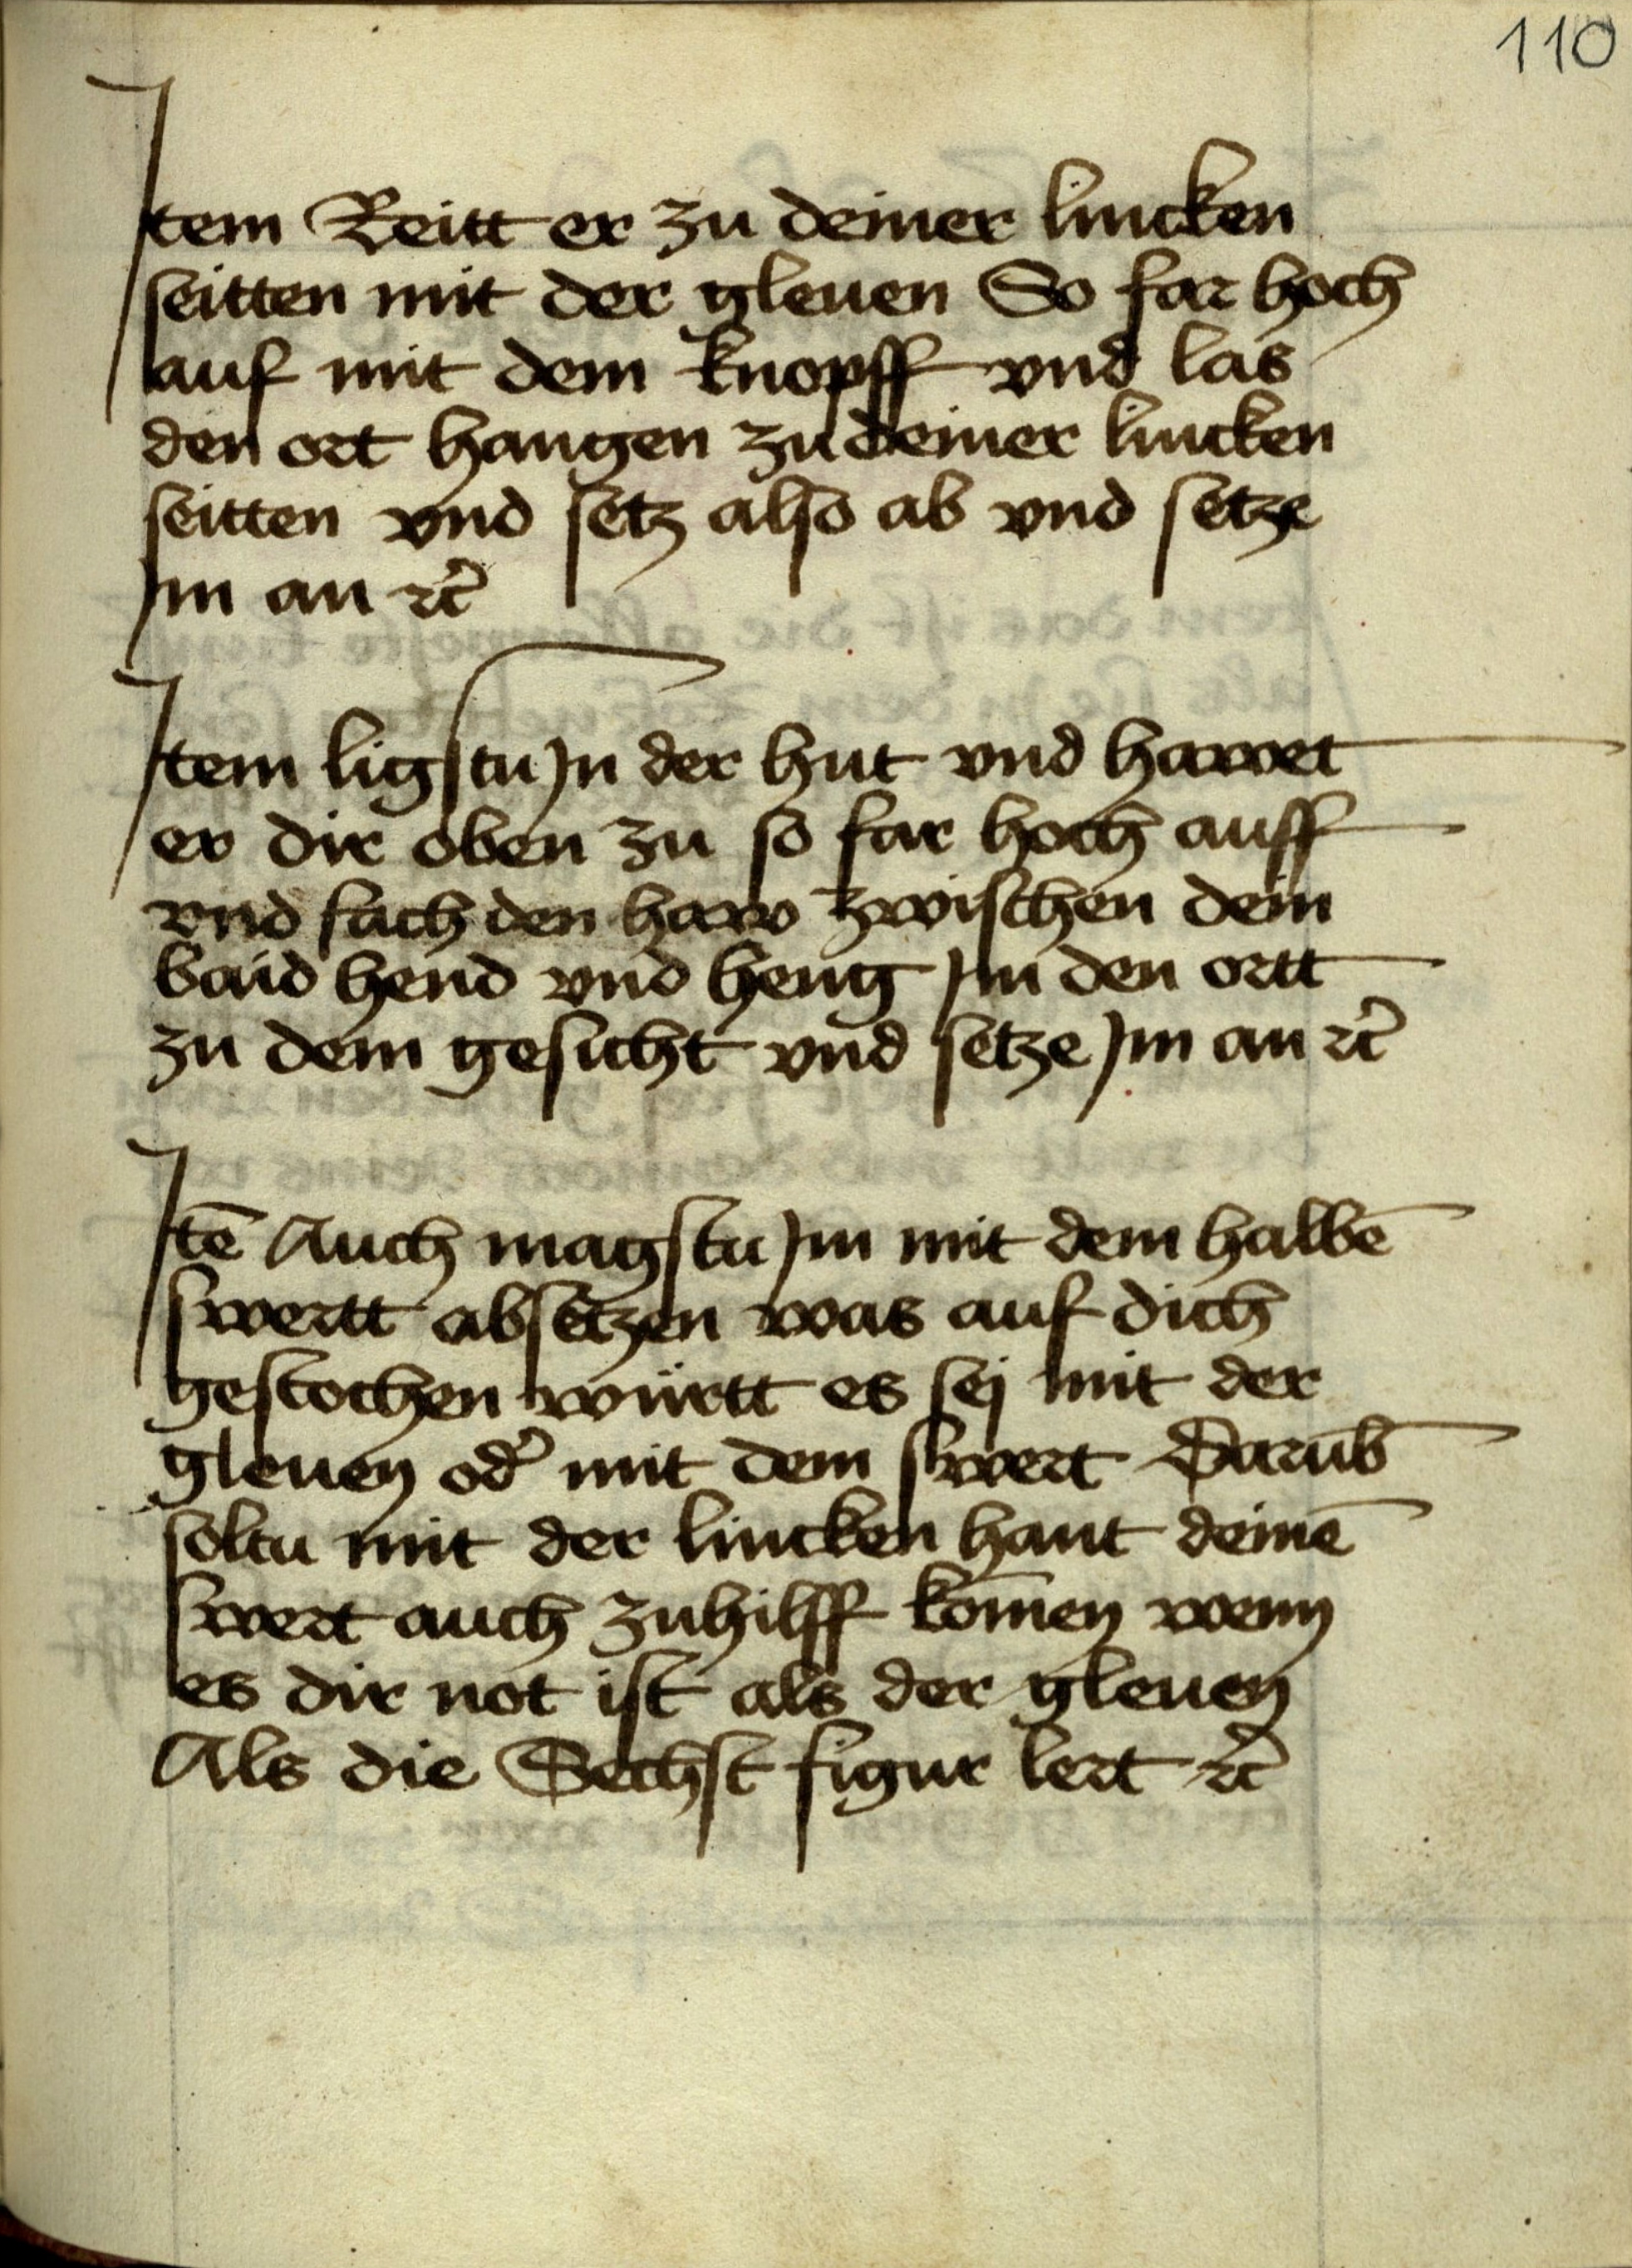 110
Jtem Reitt er zu deiner lincken
seitten mit der gleuen So far hoch
auf mit dem knopff vnd las
den ort hangen zu deiner lincken
seitten vnd setz also ab vnd setze
Jm an ꝛc̃
Jtem ligstu Jn der hut vnd hawet
er dir oben zu so far hoch auff
vnd fach den haw zwischen dein
baid hend vnd heng Jm den ortt
zu dem gesicht vnd setze Jm an ꝛc̃
Jtē Auch magstu Jm mit dem halbē
swertt absetzen was auf dich
gestochen württ es sej mit der
gleuen od̾ mit dem swert Darūb
soltu mit der lincken hant deinē
swert auch zuhilff kom̄en wenn
es dir not ist als der gleuen
Als die Sechst figur lert ꝛc̃